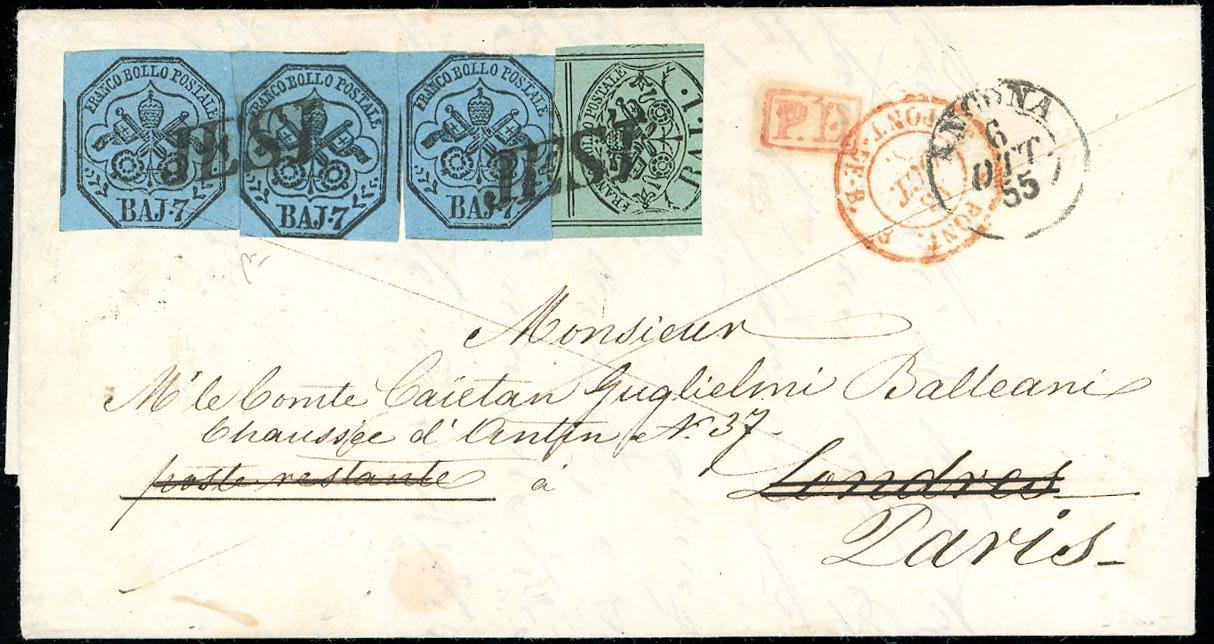 FRANCO BOLLO POSTALE
BAJ·7
FRANCO BOLLO POSTALE
BAJ·7
FRANCO BOLLO POSTALE
BAJ·7
FRANCO BOLLO POSTALE
BAJ. 1.
JESI
JESI
P.D.
PONT-DE-B.
ANCONA
6
OTT.
55
Monsieur
Mr. le Comte Caïetan Guglielmi Balleani
Chaussée d'Antin N. 37
poste restante à Londres
Paris